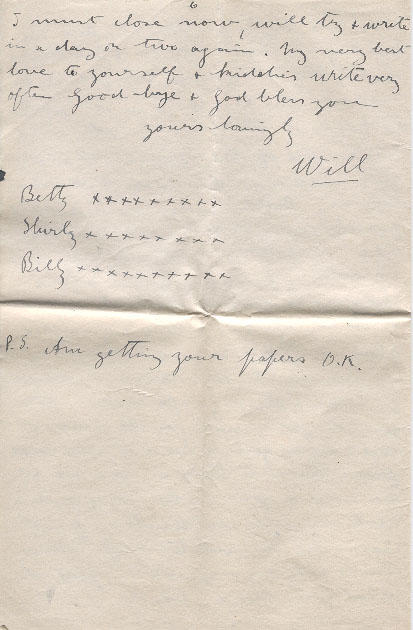 6
I must close now, will try & write
in a day or two again. My very best
love to yourself & kiddies write very
often good bye & God bless you
yours lovingly
Will
Betty xxxxxxxxx
Shirly xxxxx xxx
Billy xxxxxxxxxx
P.S. Am getting your papers O.K.